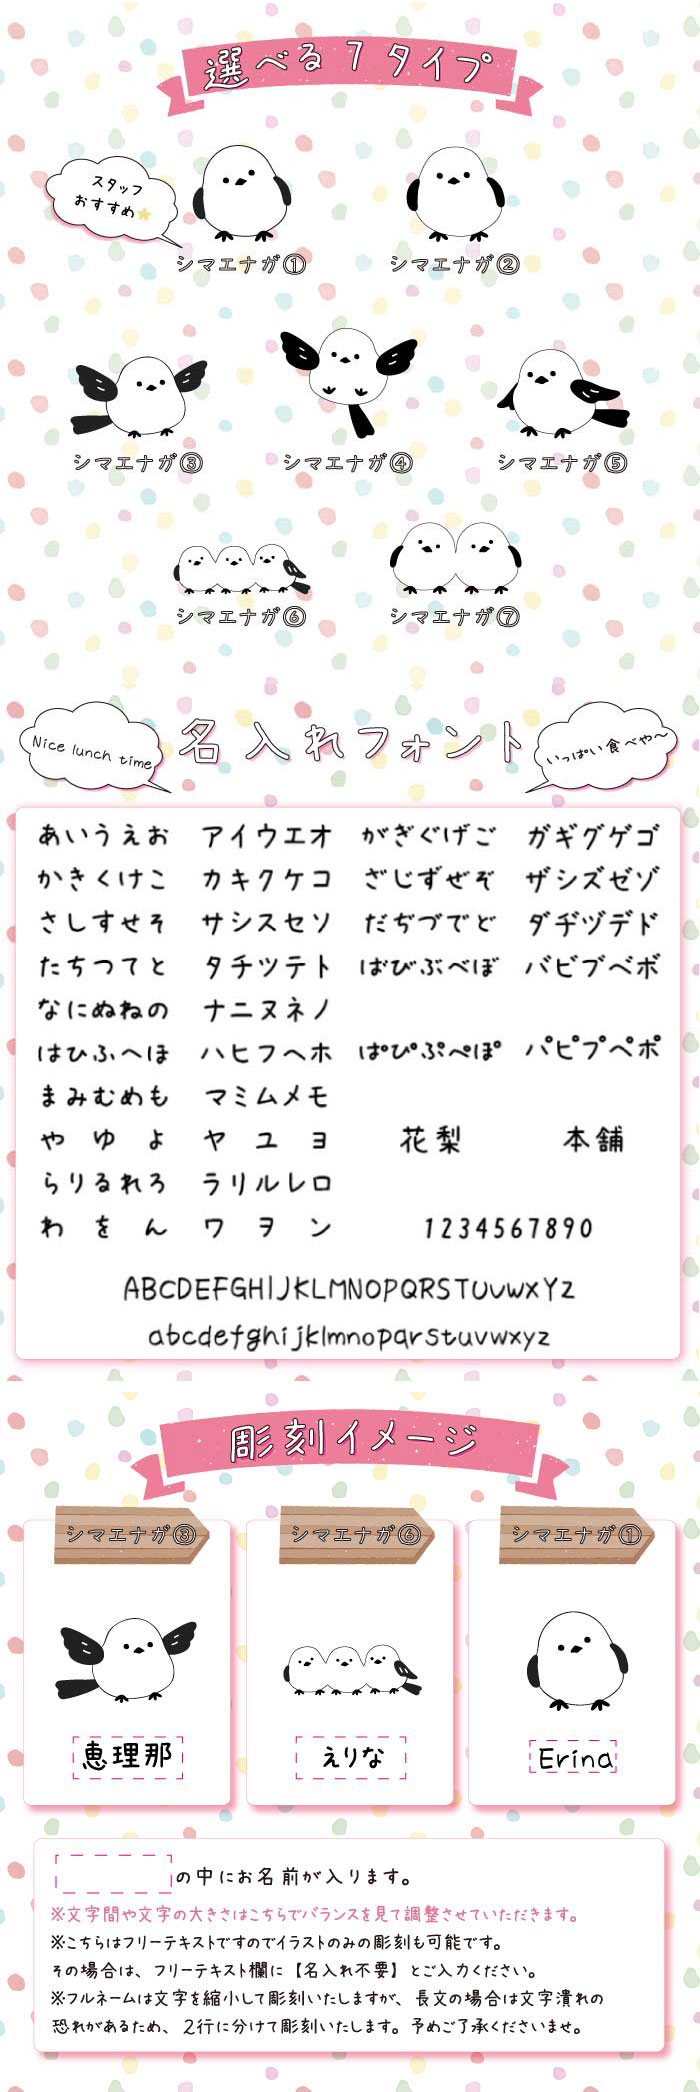 選べる7タイプ
スタッフ
おすすめ
シマエナガ①
シマエナガ②
シマエナガ③
シマエナガ④
シマエナガ⑤
シマエナガ⑥
シマエナガ⑦
Nice lunch time
名入れフォント
いっぱい食べや〜
あいうえお アイウエオ がぎぐげご ガギグゲゴ
かきくけこ カキクケコ ざじずぜぞ ザジズゼゾ
さしすせそ サシスセソ だぢづでど ダヂヅデド
たちつてと タチツテト ばびぶべぼ バビブベボ
なにぬねの ナニヌネノ
はひふへほ ハヒフヘホ ぱぴぷぺぽ パピプペポ
まみむめも マミムメモ
や ゆ よ ヤ ユ ヨ 花梨 本舗
らりるれろ ラリルレロ
わ を ん ワ ヲ ン 1234567890
ABCDEFGHIJKLMNOPQRSTUVWXYZ
abcdefghijklmnopqrstuvwxyz
彫刻イメージ
シマエナガ③
シマエナガ⑥
シマエナガ①
恵理那
えりな
Erina
の中にお名前が入ります。
※文字間や文字の大きさはこちらでバランスを見て調整させていただきます。
※こちらはフリーテキストですのでイラストのみの彫刻も可能です。
その場合は、フリーテキスト欄に【名入れ不要】とご入力ください。
※フルネームは文字を縮小して彫刻いたしますが、長文の場合は文字潰れの
恐れがあるため、2行に分けて彫刻いたします。予めご了承くださいませ。